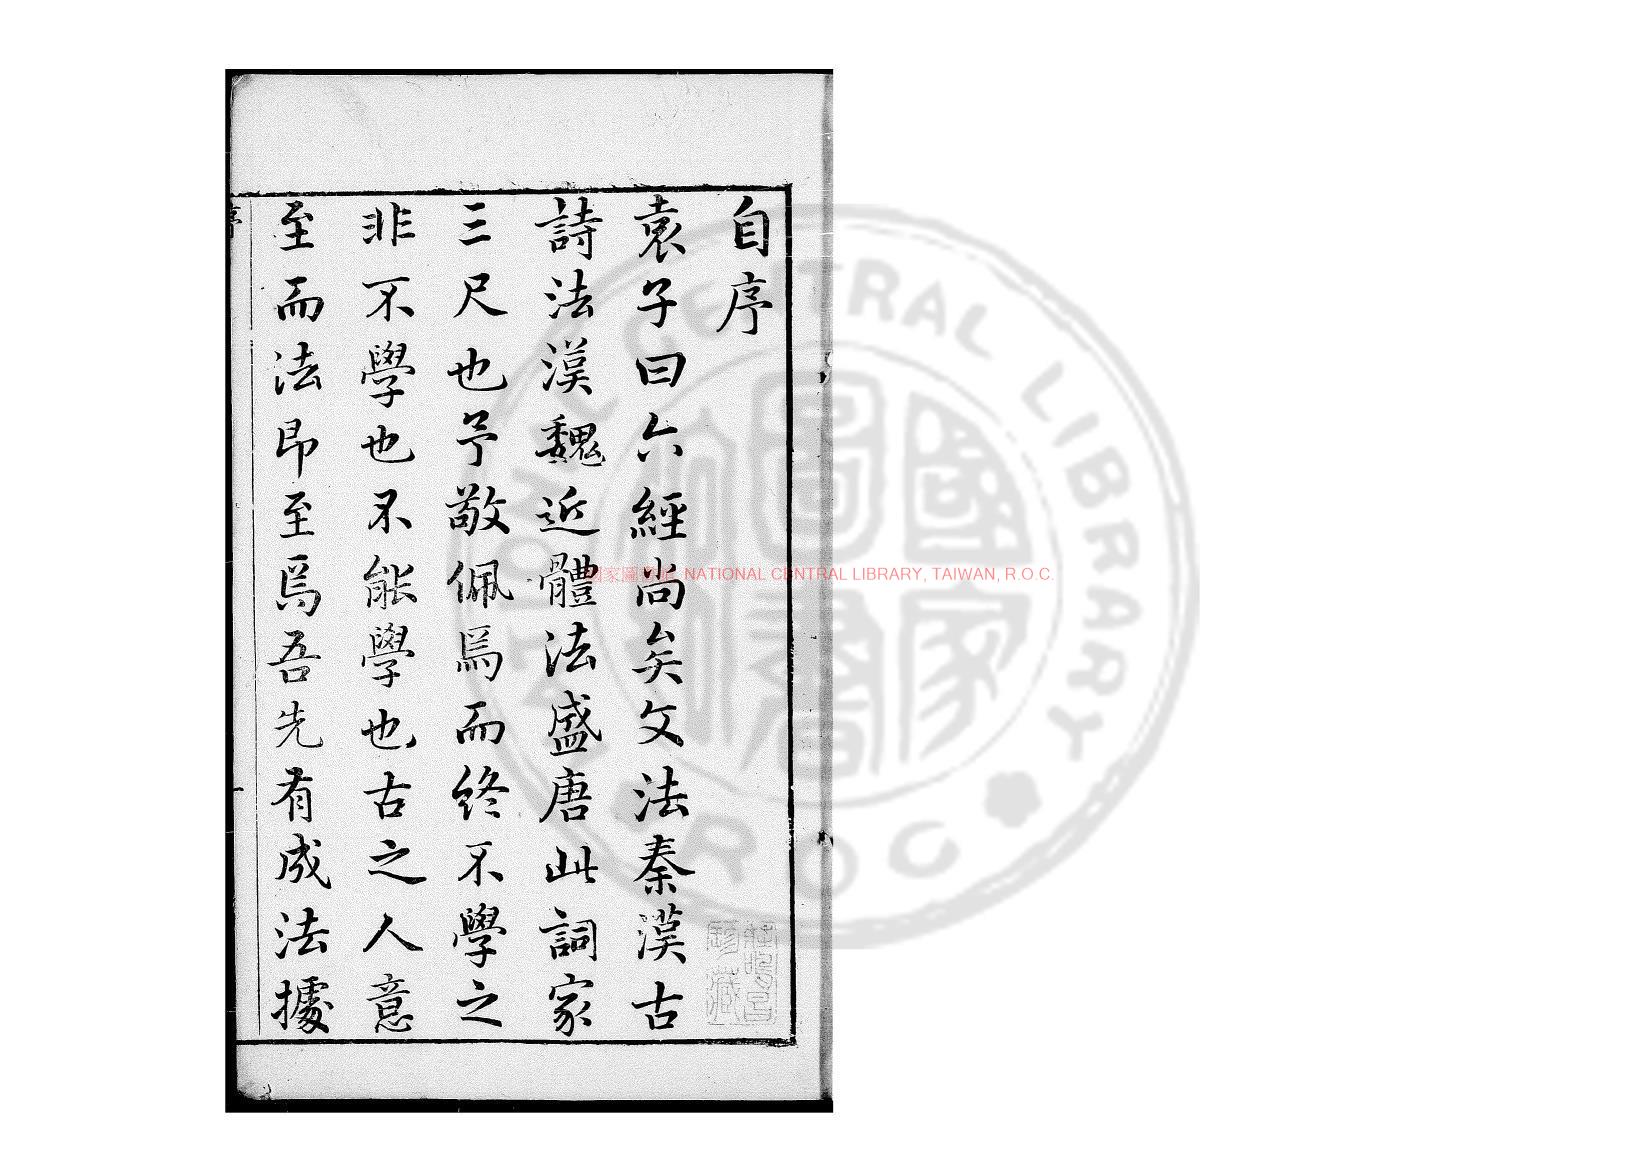 自序
袁子曰六經尚矣文法秦漢古
詩法漢魏近體法盛唐此詞家
三尺也予敬佩焉而終不學之
非不學也不能學也古之人意
至而法即至焉吾先有成法據
序
一
國家圖書館 NATIONAL CENTRAL LIBRARY, TAIWAN, R.O.C.
NATIONAL CENTRAL LIBRARY R.O.C
國家圖書
珍藏